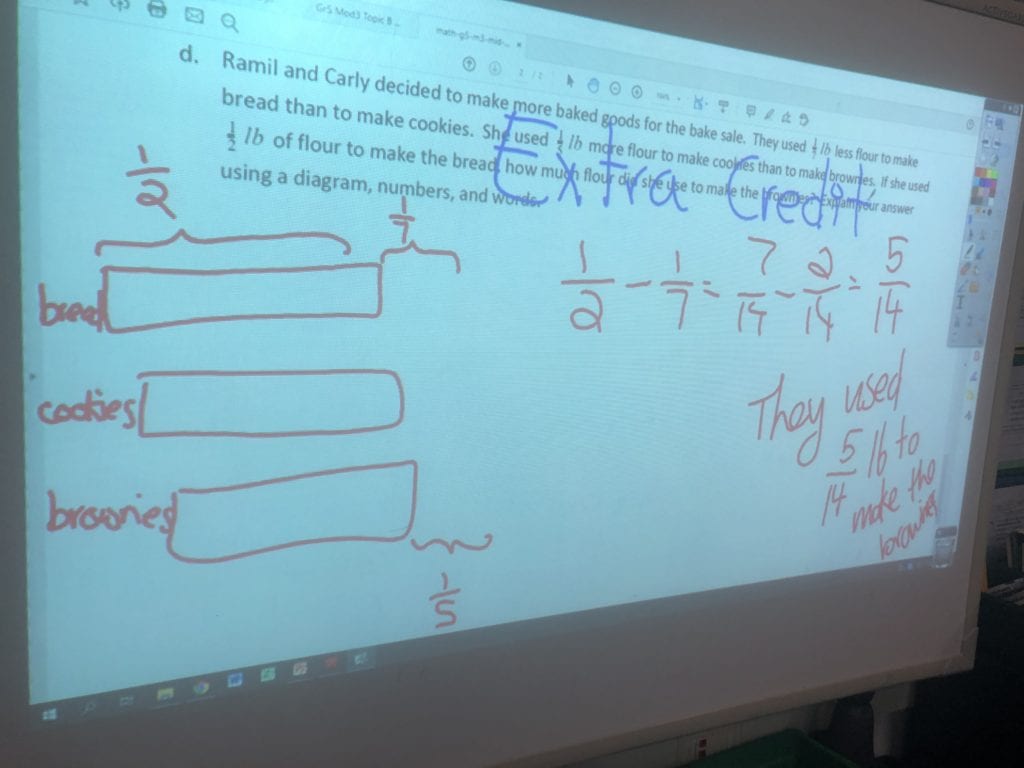 Gr5 Mod3 Topic B...
math-g5-m3-mid-...
2 / 2
d. Ramil and Carly decided to make more baked goods for the bake sale. They used 1/7 lb less flour to make
bread than to make cookies. She used 1/5 lb more flour to make cookies than to make brownies. If she used
1/2 lb of flour to make the bread, how much flour did she use to make the brownies? Explain your answer
using a diagram, numbers, and words.
Extra Credit
1/2
1/7
bread
1/2 - 1/7 = 7/14 - 2/14 = 5/14
cookies
They used
5/14 lb to
make the
brownies
brownies
1/5